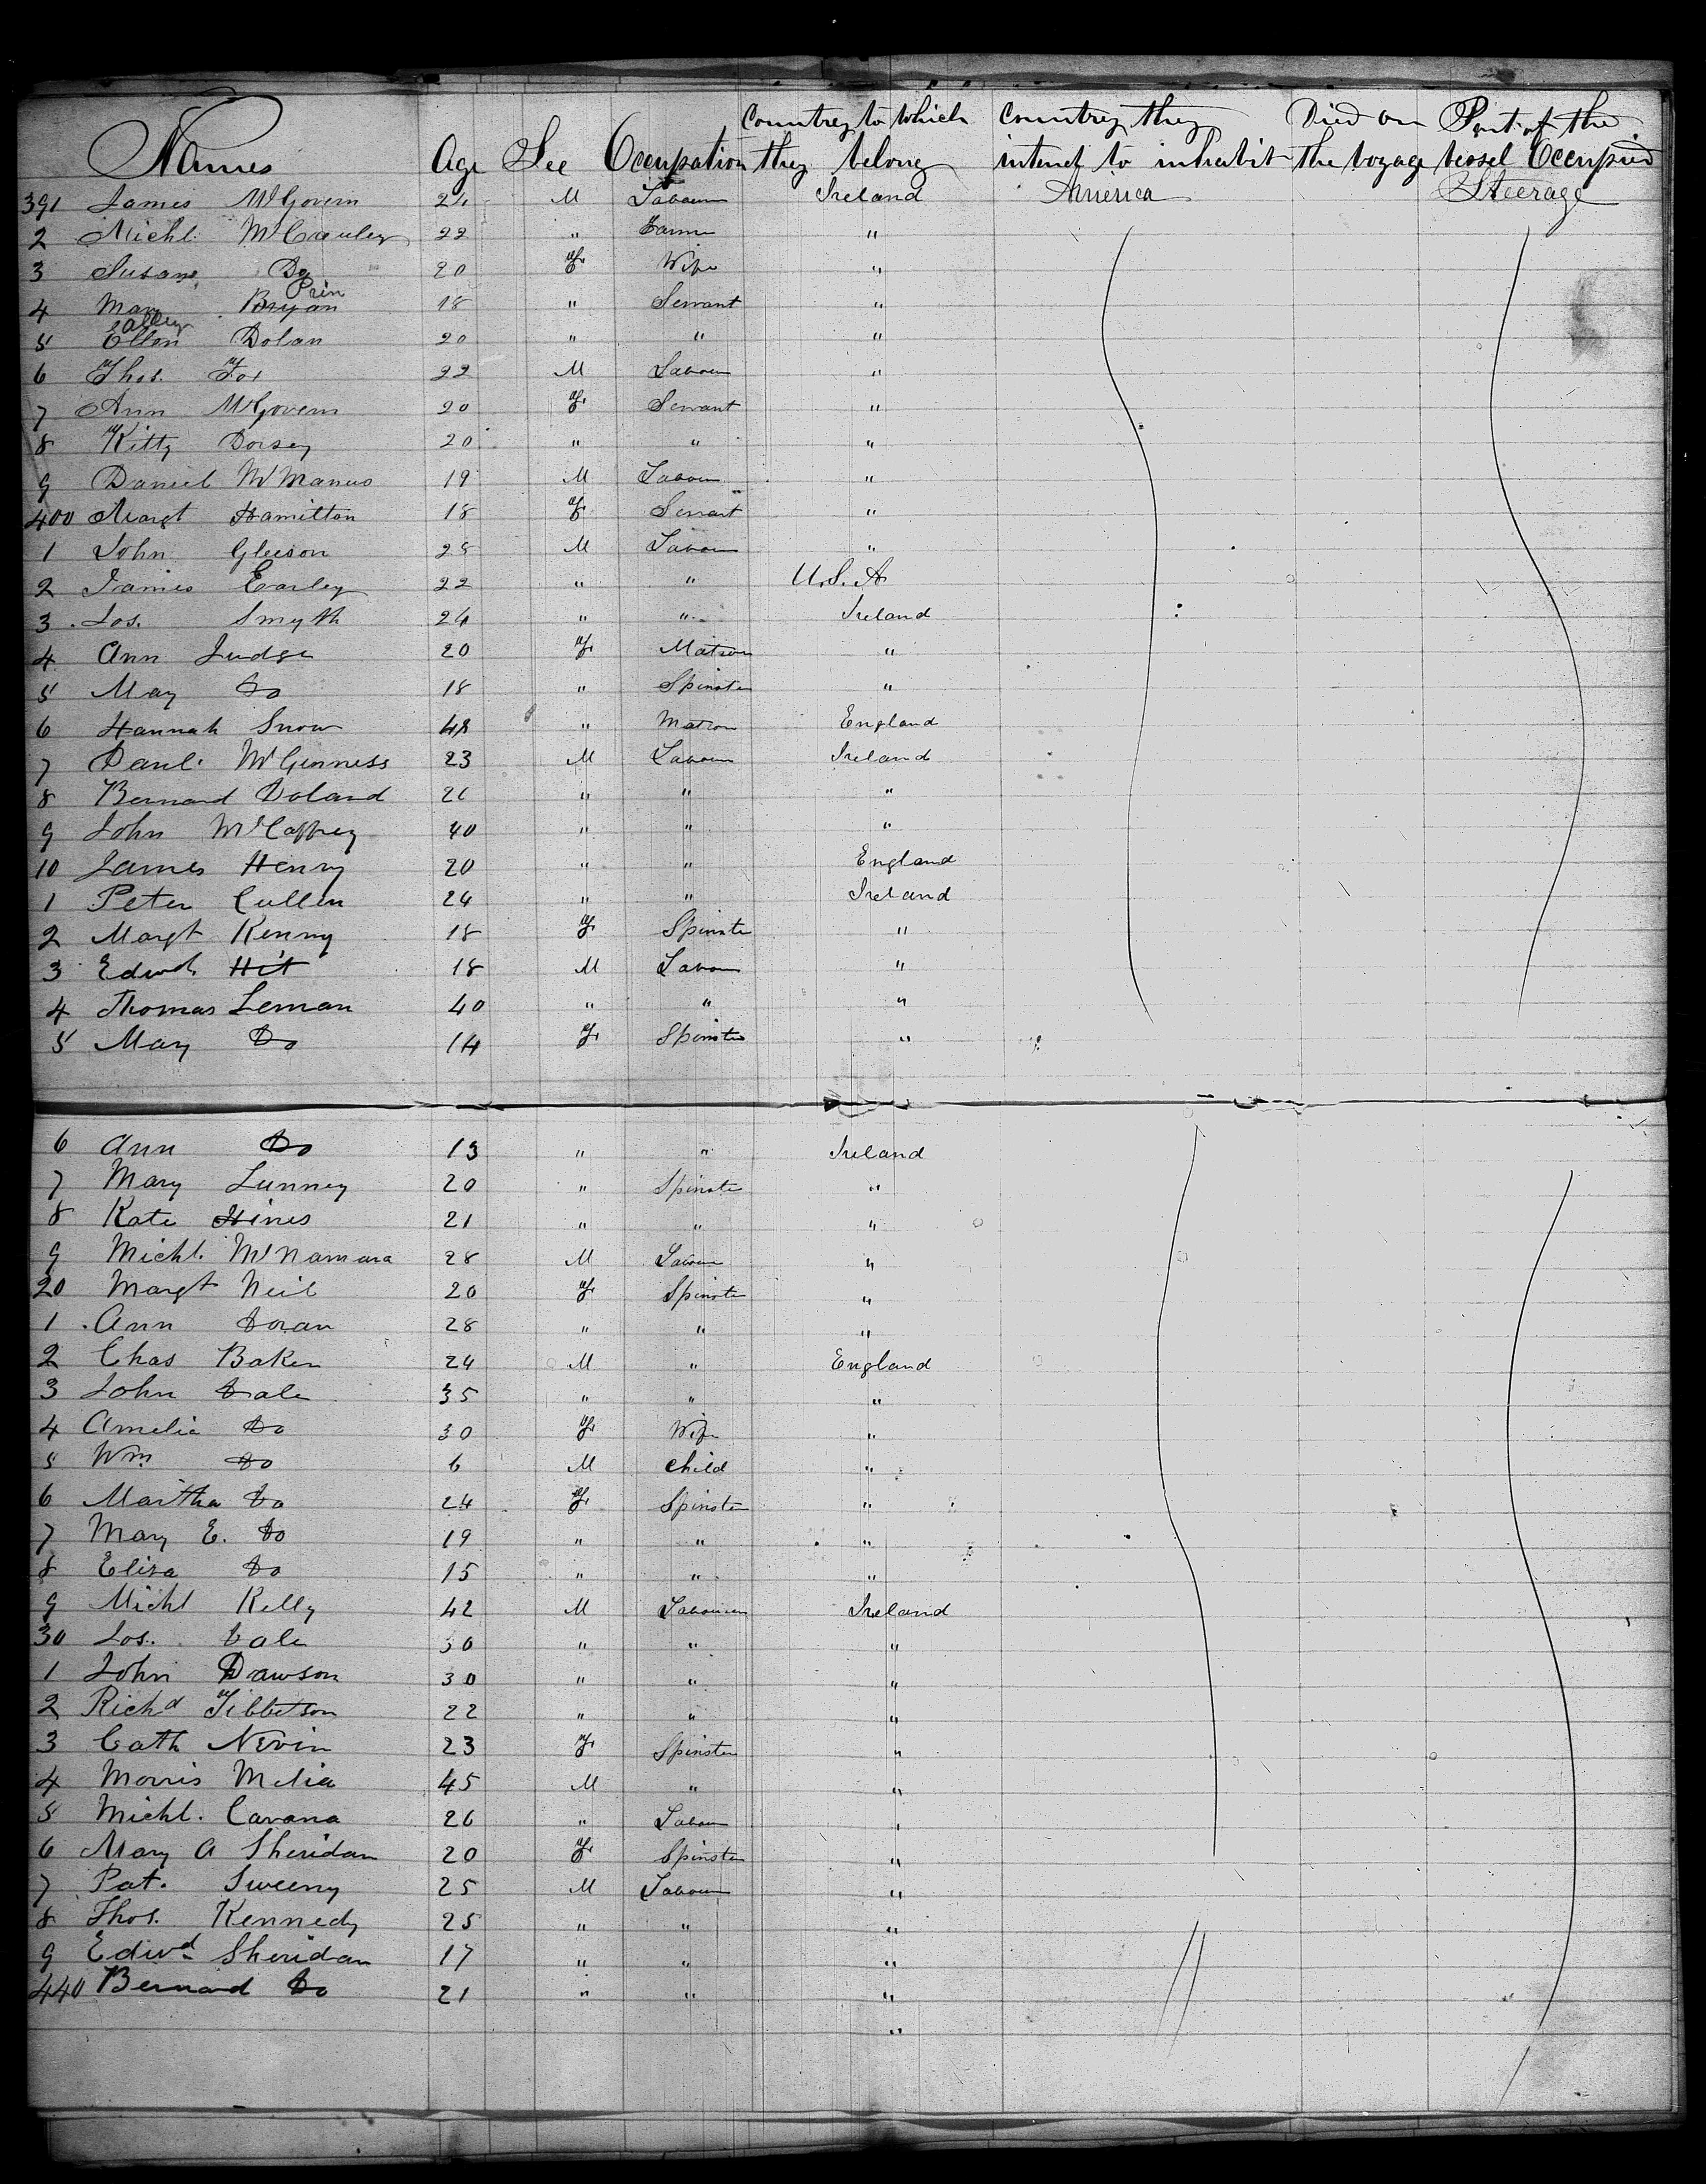 Names Age Sex Occupation Country to which they belong Country they intend to inhabit Died on the voyage Part of the vessel Occupied
391 James McGovern 24 M Labourer Ireland America Steerage
2 Michl. McCauley 22 " Farmer "
3 Susan Do 20 F Wife "
Prin
4 Mary Bryan 18 " Servant "
5 Ellen Dolan 20 " " "
6 Thos. Fox 22 M Labour "
7 Ann McGovern 20 F Servant "
8 Kitty Dorsey 20 " " "
9 Daniel McManus 19 M Labour "
400 Margt Hamilton 18 F Servant "
1 John Gleeson 28 M Labour "
2 James Earley 22 " " U.S.A
3 Jos. Smyth 24 " " Ireland
4 Ann Judge 20 F Matron "
5 Mary Do 18 " Spinster "
6 Hannah Snow 48 " Matron England
7 Danl. McGinness 23 M Labour Ireland
8 Bernard Doland 26 " " "
9 John McCaffrey 40 " " "
10 James Henry 20 " " England
1 Peter Cullen 24 " " Ireland
2 Margt Kenny 18 F Spinster "
3 Edwd. Hit 18 M Labour "
4 Thomas Leman 40 " " "
5 Mary Do 14 F Spinster "
6 Ann Do 13 " " Ireland
7 Mary Lunney 20 " Spinster "
8 Kate Hines 21 " " "
9 Michl. McNamara 28 M Labour "
20 Margt Neil 20 F Spinster "
1 Ann Doran 28 " " "
2 Chas Baker 24 M " England
3 John Dale 35 " " "
4 Amelia Do 30 F Wife "
5 Wm Do 6 M Child "
6 Martha Do 24 F Spinster "
7 Mary E. Do 19 " " "
8 Eliza Do 15 " " "
9 Michl Kelly 42 M Labourer Ireland
30 Jos. Dale 30 " " "
1 John Dawson 30 " " "
2 Richd Tibbetson 22 " " "
3 Cath Nevin 23 F Spinster "
4 Morris Melia 45 M " "
5 Michl. Cavana 26 " Labour "
6 Mary A Sheridan 20 F Spinster "
7 Pat. Sweeny 25 M Labour "
8 Thos. Kennedy 25 " " "
9 Edwd Sheridan 17 " " "
440 Bernard Do 21 " " "
"